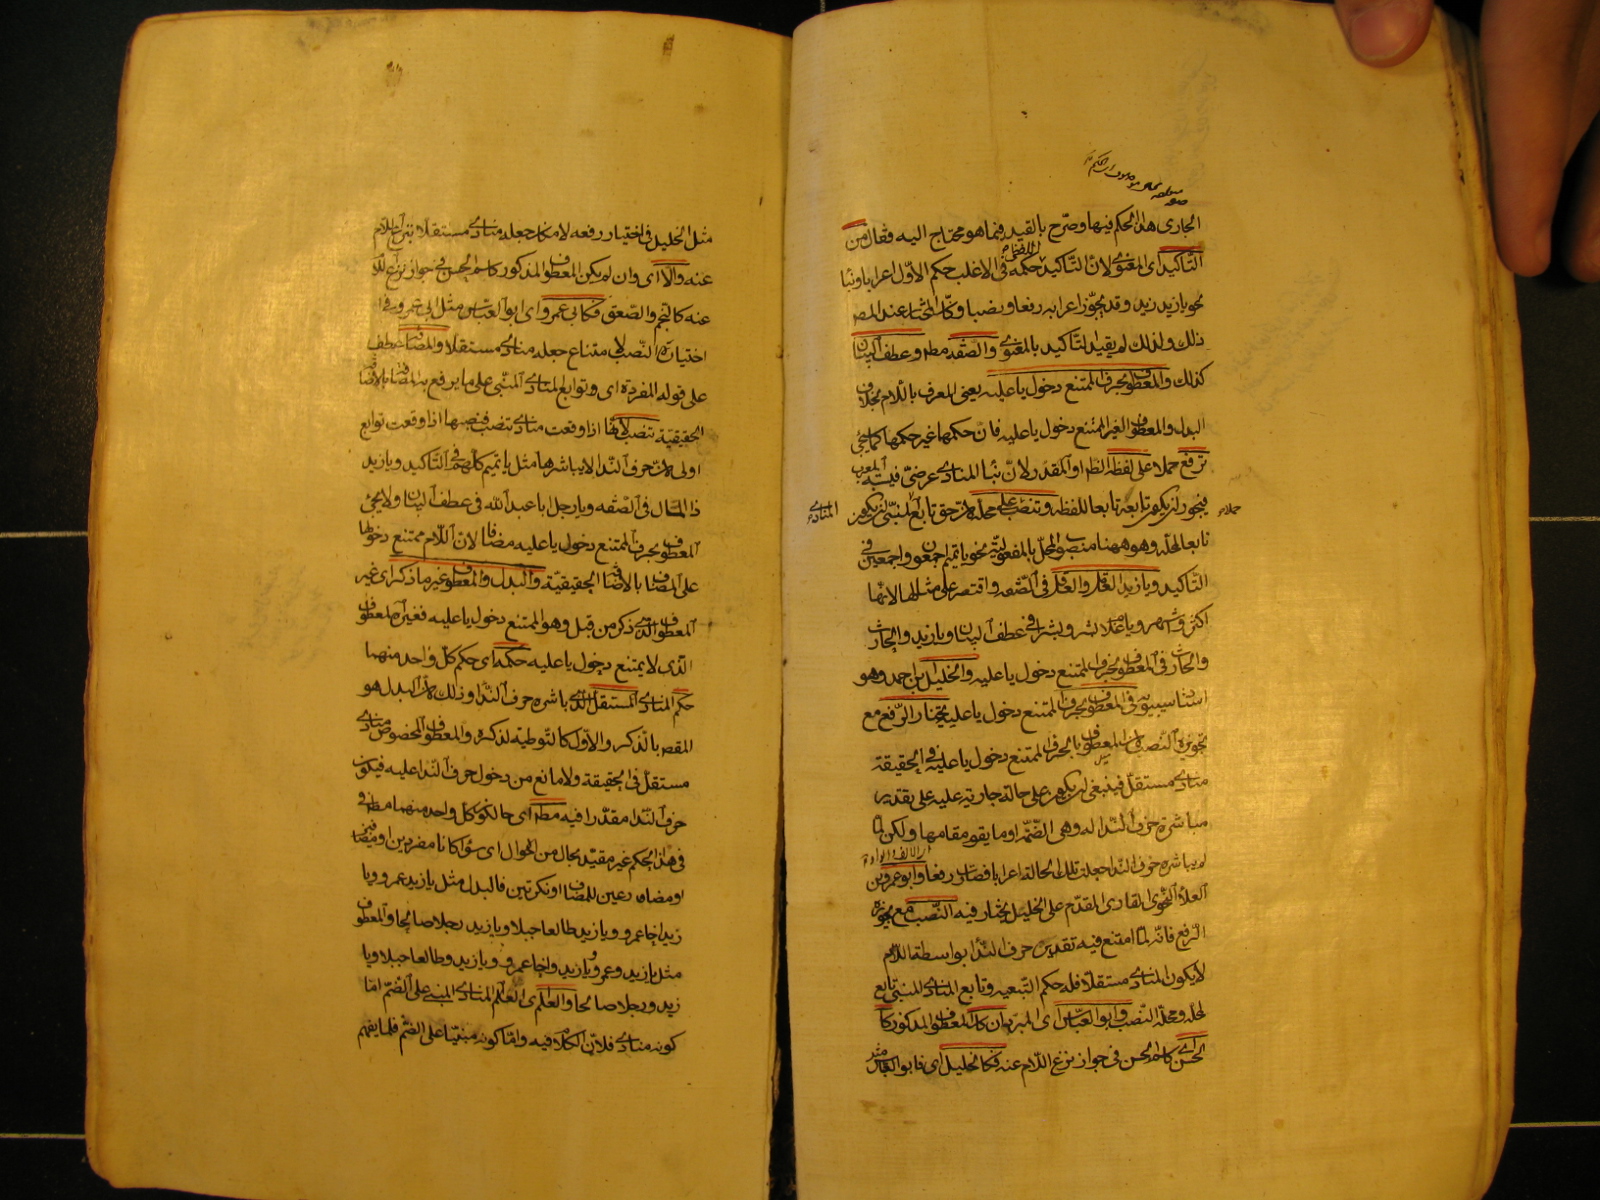 الجارى هذا الحكم فيها وصرّح بالقيد فيما هو محتاج اليه فقال من
التاكيد اى المعنوى لانّ التاكيد حكمه فى الاغلب حكم الاوّل اعرابا وبناء
نحو يا زيد زيد وقد يجوّز اعرابه رفعا ونصبا وكانّ المختار عند المصـ
ذلك ولذلك لم يقيد التاكيد بالمعنوى والصّفة مطـ وعطف البيان
كذلك والمعطوف بحرف الممتنع دخول يا عليه يعنى المعرف باللام بخلاف
البدل والمعطوف الغير الممتنع دخول يا عليه فانّ حكمهما غير حكمها كما يجئ
ترفع حملا على لفظه الظـ او المقدر لانّ بناء المنادى عرضىّ فيشبه المعرب
فيجوز ان يكون تابعه تابعا للفظه وتنصب على محله لانّ حق تابع المبنىّ ان يكون
تابعا لمحله وهو ههنا منصوب المحلّ بالمفعوليّة نحو يا تيم اجمعون واجمعين فى
التاكيد ويا زيد العاقل والعاقل فى الصّفه واقتصر على مثالها لانّها
اكثر واشهر ويا غلام بشر وبشرا فى عطف البيان ويا زيد والحارث
والحارث فى المعطوف بحرف الممتنع دخول يا عليه والخليل بن احمد وهو
استاد سيبويه فى المعطوف بحرف الممتنع دخول يا عليه يختار الرّفع مع
تجويزه النّصب لان المعطوف بالحرف الممتنع دخول يا عليه فى الحقيقة
منادى مستقلّ فينبغى ان يكون على حالة جارية عليه على تقدير
مباشرة حرف النّدا له وهى الضّمّة او ما يقوم مقامها ولكن لمّا
لم يباشره حرف النّدا جعلت تلك الحالة اعرابا فصارت رفعا وابو عمرو بن
العلاء النّحوى القارى المقدّم على الخليل يختار فيه النّصب مع تجويزه
الرّفع فانّه لمّا امتنع فيه تقدير حرف النّدا بواسطة اللّام
لا يكون منادى مستقلّا فله حكم التّبعيه وتابع المنادى المبنىّ تابع
لمحله ومحلّه النّصب وابو العبّاس اى المبرّد ان كان المعطوف المذكور كا
الحسن اى كاسم الحسن فى جواز نزع اللّام عنه فكالخليل اى فابو العباس مثل
المنادى
مثل الخليل فى اختيار رفعه لامكان جعله منادى مستقلّا بنزع اللام
عنه والّا اى وان لم يكن المعطوف المذكور كاسم الحسن فى جواز نزع اللام
عنه كالنجم والصّعق فكابى عمرو اى ابو العبّاس مثل ابى عمرو فى
اختيار النّصب لامتناع جعله منادى مستقلا والمضافة عطف
على قوله المفردة اى وتوابع المنادى المبنى على ما يرفع به المضافة بالاضافة
الحقيقيّة تنصب لانّها اذا وقعت منادى تنصب فنصبها اذا وقعت توابع
اولى لانّ حرف النّدا لا يباشرها مثل يا تيم كلّهم فى التّاكيد ويا زيد
ذا المال فى الصّفه ويا رجل ابا عبد اللّه فى عطف البيان ولا يجئ
المعطوف بحرف الممتنع دخول يا عليه مضافا لانّ اللّام ممتنع دخولها
على المضاف بالاضافة الحقيقيّة والبدل والمعطوف غير ما ذكر اى غير
المعطوف الّذى ذكر من قبل وهو الممتنع دخول يا عليه فغيره المعطوف
الّذى لا يمتنع دخول يا عليه حكمه اى حكم كلّ واحد منهما
حكم المنادى المستقلّ الّذى باشره حرف النّدا وذلك لانّ البدل هو
المقصـ بالذّكر والاوّل كالتّوطية لذكره والمعطوف المخصوص منادى
مستقلّ فى الحقيقة ولا مانع من دخول حرف النّدا عليه فيكون
حرف النّدا مقدّرا فيه مطـ اى حال كون كلّ واحد منهما مطـ
فى هذا الحكم غير مقيّد بحال من الاحوال اى سواء كانا مفردين او مضافين
او مضارعين للمضاف او نكرتين فالبدل مثل يا زيد عمرو ويا
زيد اخا عمرو ويا زيد طالعا جبلا ويا زيد رجلا صالحا والمعطوف
مثل يا زيد وعمرو ويا زيد واخا عمرو ويا زيد وطالعا جبلا ويا
زيد ورجلا صالحا والعلم اى العلم المنادى المبنى على الضّمّ امّا
كونه منادى فلانّ الكلام فيه وامّا كونه مبنيّا على الضّم فلما يفهم